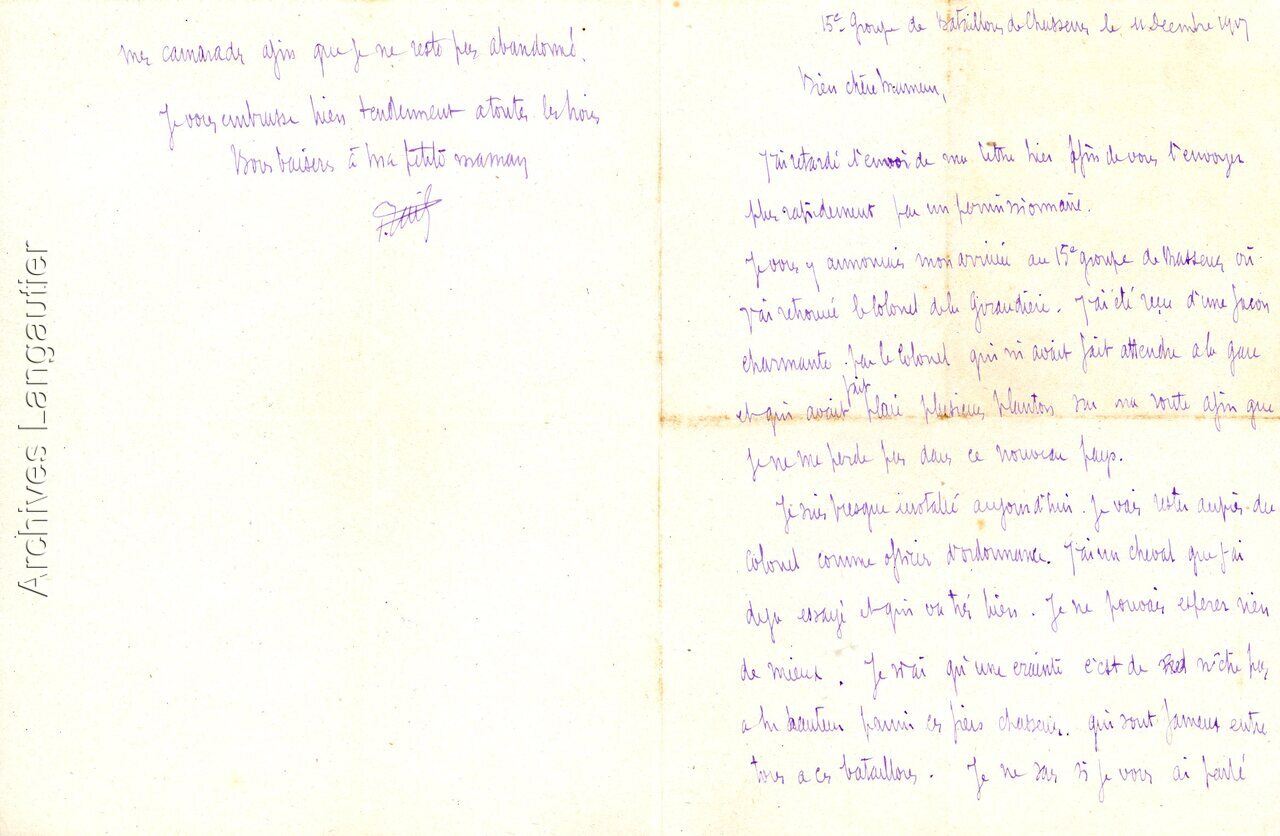 15e Groupe de Bataillons de Chasseurs le 11 Decembre 1917
Bien chère Maman,
J'ai retardé l'envoi de ma lettre hier afin de vous l'envoyer
plus rapidement par un permissionnaire.
Je vous y annonçais mon arrivée au 15e groupe de Chasseurs où
j'ai retrouvé le Colonel de la Giraudière. J'ai été reçu d'une façon
charmante par le Colonel qui m'avait fait attendre a la gare
et qui avait fait placé plusieurs plantons sur ma route afin que
je ne me perde pas dans ce nouveau pays.
Je suis presque installé aujourd'hui. Je vais rester auprès du
Colonel comme officier d'ordonnance. J'ai un cheval que j'ai
deja essayé et qui va très bien. Je ne pouvais esperer rien
de mieux. Je n'ai qu'une crainte c'est de n'être pas
a la hauteur parmi ces fiers chasseurs. qui sont fameux entre
tous a ces bataillons. Je ne sais si je vous ai parlé
mes camarades afin que je ne reste pas abandonné.
Je vous embrasse bien tendrement a toutes les trois
Bons baisers à ma petite maman
Archives Langautier